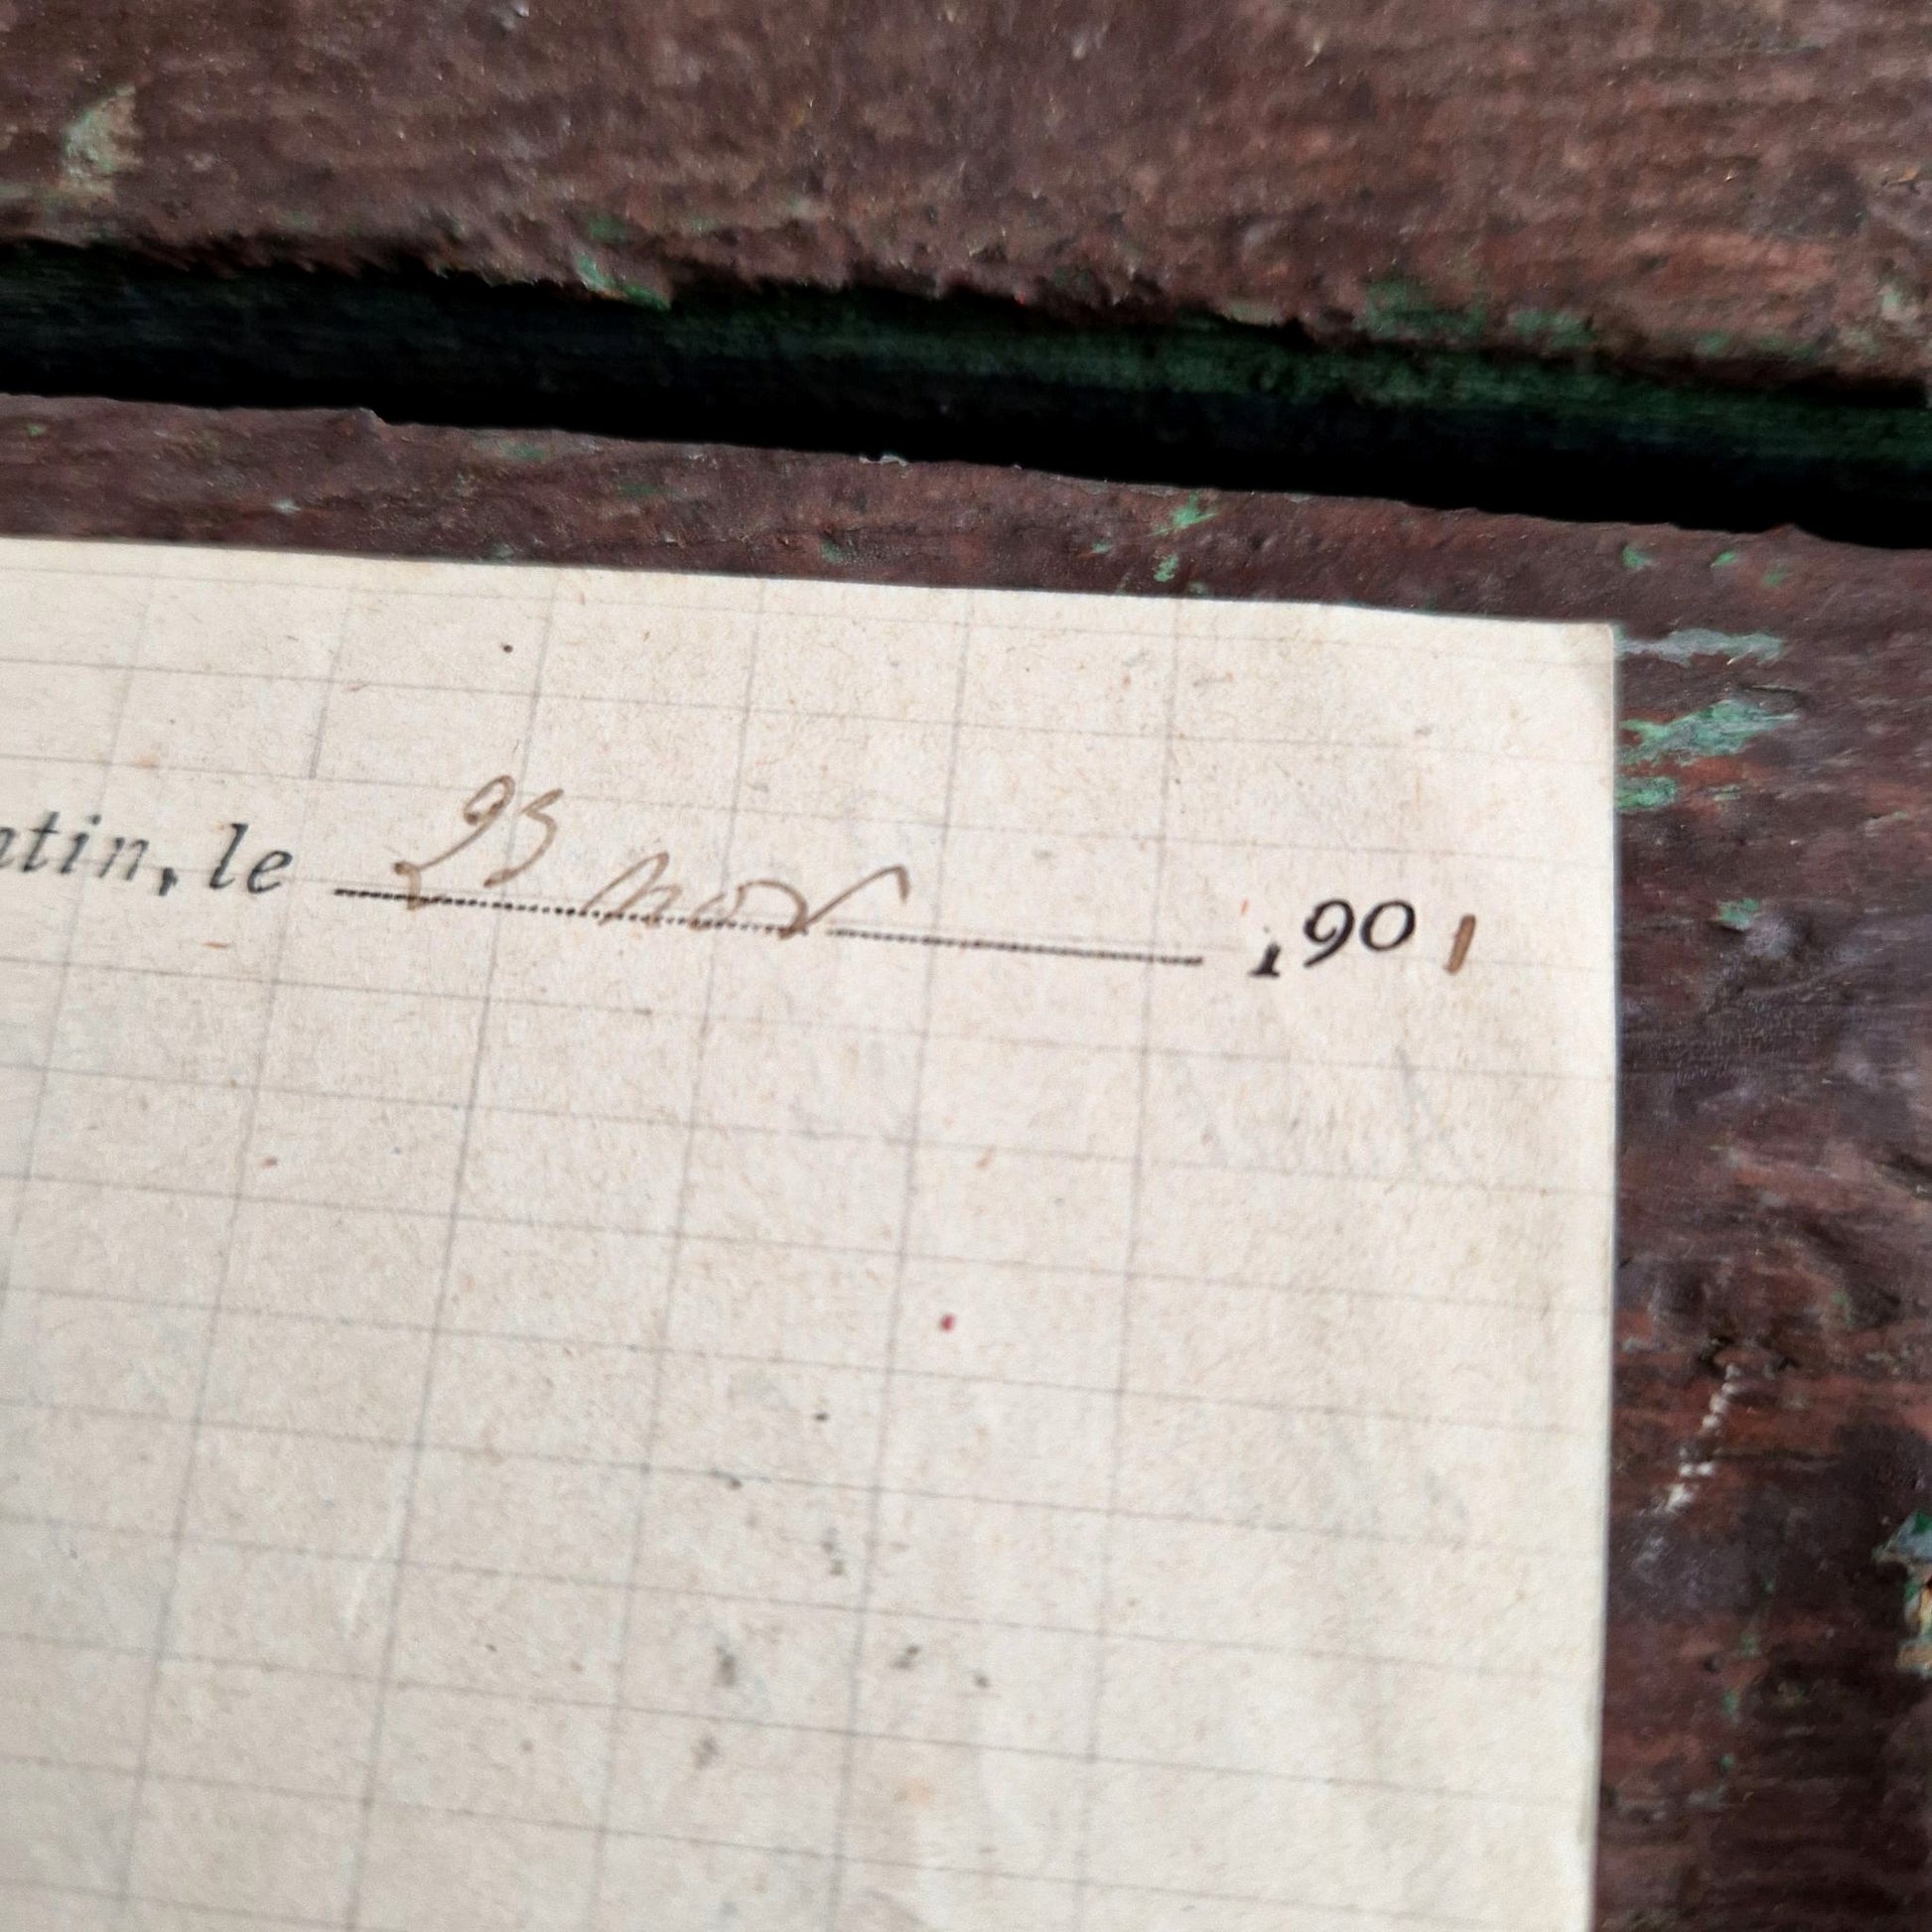 ntin, le 23 nov 1901